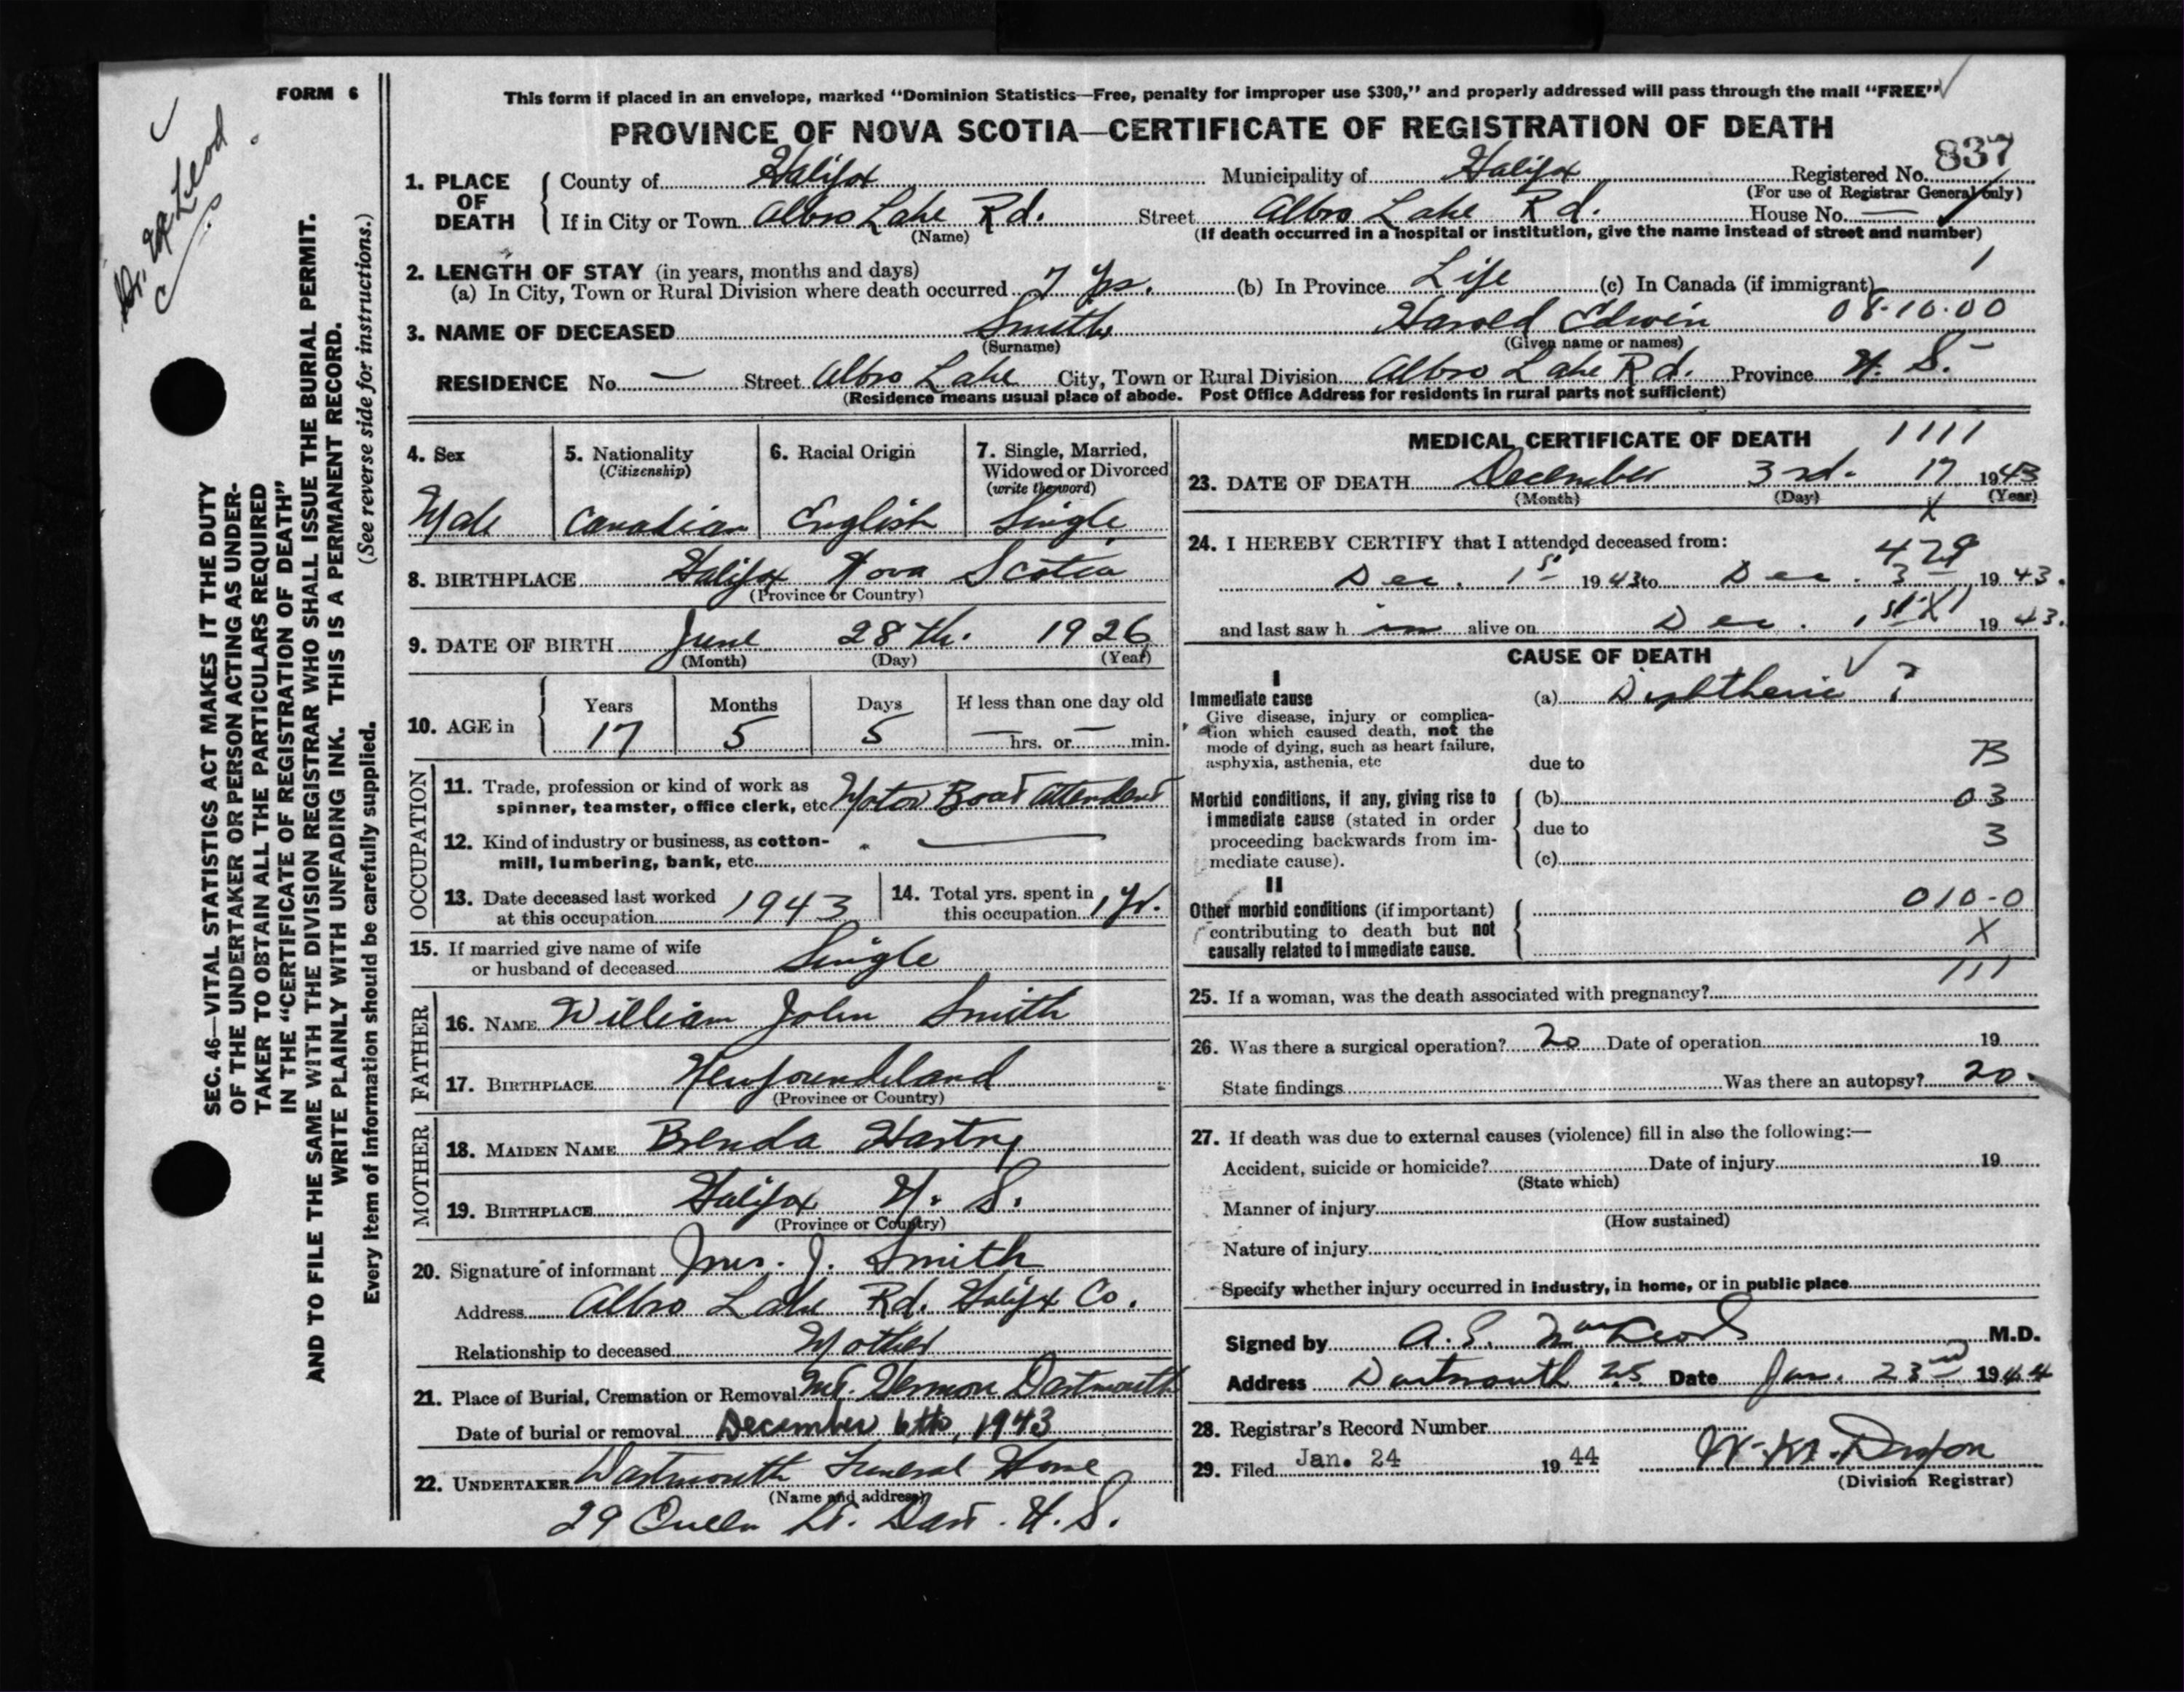 FORM 6
This form if placed in an envelope, marked "Dominion Statistics—Free, penalty for improper use $300," and properly addressed will pass through the mail "FREE"
PROVINCE OF NOVA SCOTIA—CERTIFICATE OF REGISTRATION OF DEATH
837
1. PLACE OF DEATH County of Halifax Municipality of Halifax Registered No.
(For use of Registrar General only)
If in City or Town Albro Lake Rd. Street Albro Lake Rd. House No. —
(Name) (If death occurred in a hospital or institution, give the name instead of street and number)
2. LENGTH OF STAY (in years, months and days)
(a) In City, Town or Rural Division where death occurred 7 yrs. (b) In Province Life (c) In Canada (if immigrant)
08-10-00
3. NAME OF DECEASED Smith Harold Edwin
(Surname) (Given name or names)
RESIDENCE No. — Street Albro Lake City, Town or Rural Division Albro Lake Rd. Province N. S.
(Residence means usual place of abode. Post Office Address for residents in rural parts not sufficient)
4. Sex 5. Nationality 6. Racial Origin 7. Single, Married,
(Citizenship) Widowed or Divorced
(write the word)
Male Canadian English Single
8. BIRTHPLACE Halifax Nova Scotia
(Province or Country)
9. DATE OF BIRTH June 28th. 1926
(Month) (Day) (Year)
10. AGE in Years Months Days If less than one day old
17 5 5 — hrs. or — min.
OCCUPATION
11. Trade, profession or kind of work as
spinner, teamster, office clerk, etc. Motor Boat Attendent
12. Kind of industry or business, as cotton-
mill, lumbering, bank, etc. —
13. Date deceased last worked
at this occupation 1943
14. Total yrs. spent in
this occupation 1 yr.
15. If married give name of wife
or husband of deceased Single
FATHER
16. NAME William John Smith
17. BIRTHPLACE Newfoundland
(Province or Country)
MOTHER
18. MAIDEN NAME Brenda Hartry
19. BIRTHPLACE Halifax N. S.
(Province or Country)
20. Signature of informant Mrs. J. Smith
Address Albro Lake Rd. Halifax Co.
Relationship to deceased Mother
21. Place of Burial, Cremation or Removal Mt. Hermon Dartmouth
Date of burial or removal December 6th, 1943
22. UNDERTAKER Dartmouth Funeral Home
(Name and address)
29 Queen St. Dart. N. S.
MEDICAL CERTIFICATE OF DEATH 1111
23. DATE OF DEATH December 3rd. 17 1943
(Month) (Day) (Year)
X
24. I HEREBY CERTIFY that I attended deceased from:
429
Dec. 1st 1943 to Dec. 3 1943.
and last saw him alive on Dec. 1st 1943.
CAUSE OF DEATH
I
Immediate cause (a) Diphtheria ?
Give disease, injury or complica-
tion which caused death, not the
mode of dying, such as heart failure,
asphyxia, asthenia, etc due to B
Morbid conditions, if any, giving rise to (b) 03
immediate cause (stated in order
proceeding backwards from im- due to 3
mediate cause). (c)
II
Other morbid conditions (if important) 010-0
contributing to death but not
causally related to immediate cause. X
111
25. If a woman, was the death associated with pregnancy?
26. Was there a surgical operation? no Date of operation 19
State findings Was there an autopsy? no
27. If death was due to external causes (violence) fill in also the following:—
Accident, suicide or homicide? Date of injury 19
(State which)
Manner of injury
(How sustained)
Nature of injury
Specify whether injury occurred in industry, in home, or in public place
Signed by A. S. MacLeod M.D.
Address Dartmouth NS Date Jan. 23rd 1944
28. Registrar's Record Number
29. Filed Jan. 24 19 44
(Division Registrar)
Dr. MacLeod
SEC. 46—VITAL STATISTICS ACT MAKES IT THE DUTY
OF THE UNDERTAKER OR PERSON ACTING AS UNDER-
TAKER TO OBTAIN ALL THE PARTICULARS REQUIRED
IN THE "CERTIFICATE OF REGISTRATION OF DEATH"
AND TO FILE THE SAME WITH THE DIVISION REGISTRAR WHO SHALL ISSUE THE BURIAL PERMIT.
WRITE PLAINLY WITH UNFADING INK. THIS IS A PERMANENT RECORD.
Every item of information should be carefully supplied. (See reverse side for instructions.)